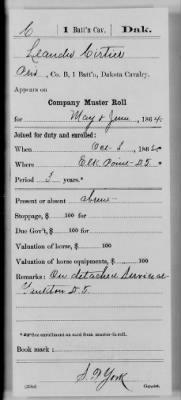 C | 1 Batt'n Cav. | Dak.
Leander
Pvt, Co. B, 1 Batt'n, Dakota Cavalry.
Appears on
Company Muster Roll
for May & June, 1864.
Joined for duty and enrolled:
When Oct 2, 186
Where Elk Point D.T.
Period 3 years.*
Present or absent absent
Stoppage, $ 100 for
Due Gov't, $ 100 for
Valuation of horse, $ 100
Valuation of horse equipments, $ 100
Remarks: On detached Service at
Yankton D.T.
* See enrollment on card from muster-in roll.
Book mark:
S. P. York
Copyist.